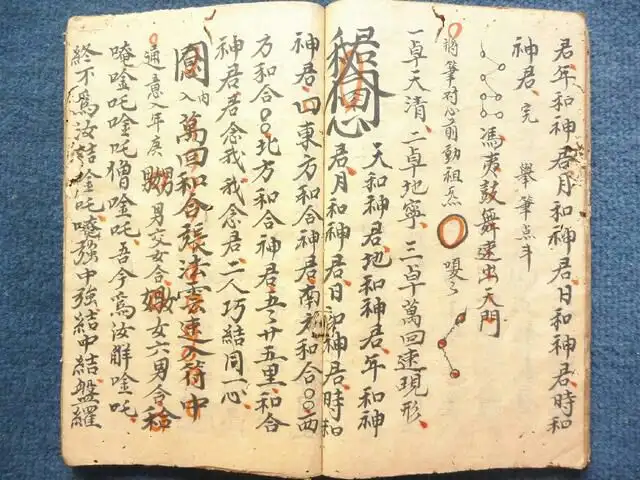 君、年和神君、月和神君、日和神君、時和
神君、完　舉筆点斗
馮夷鼓舞速出天門
將筆对心前動祖炁　嗄〻
一卓天清、二卓地寧、三卓萬回速現形、
天和神君、地和神君、年和神
君、月和神君、日和神君、時和
神君、東方和合神君、南方和合〇〇、西
方和合〇〇、北方和合神君、五〻廿五里、和合
神君、君念我、我念君、二人巧結同一心、
入內萬回和合張法雲速入符中
通意入年庚　男交女合　女六男合和
唵唫吒唫吒憎唫吒、吾今為汝解唫吒、
終不為汝結唫吒、唵強中強結中結盤羅